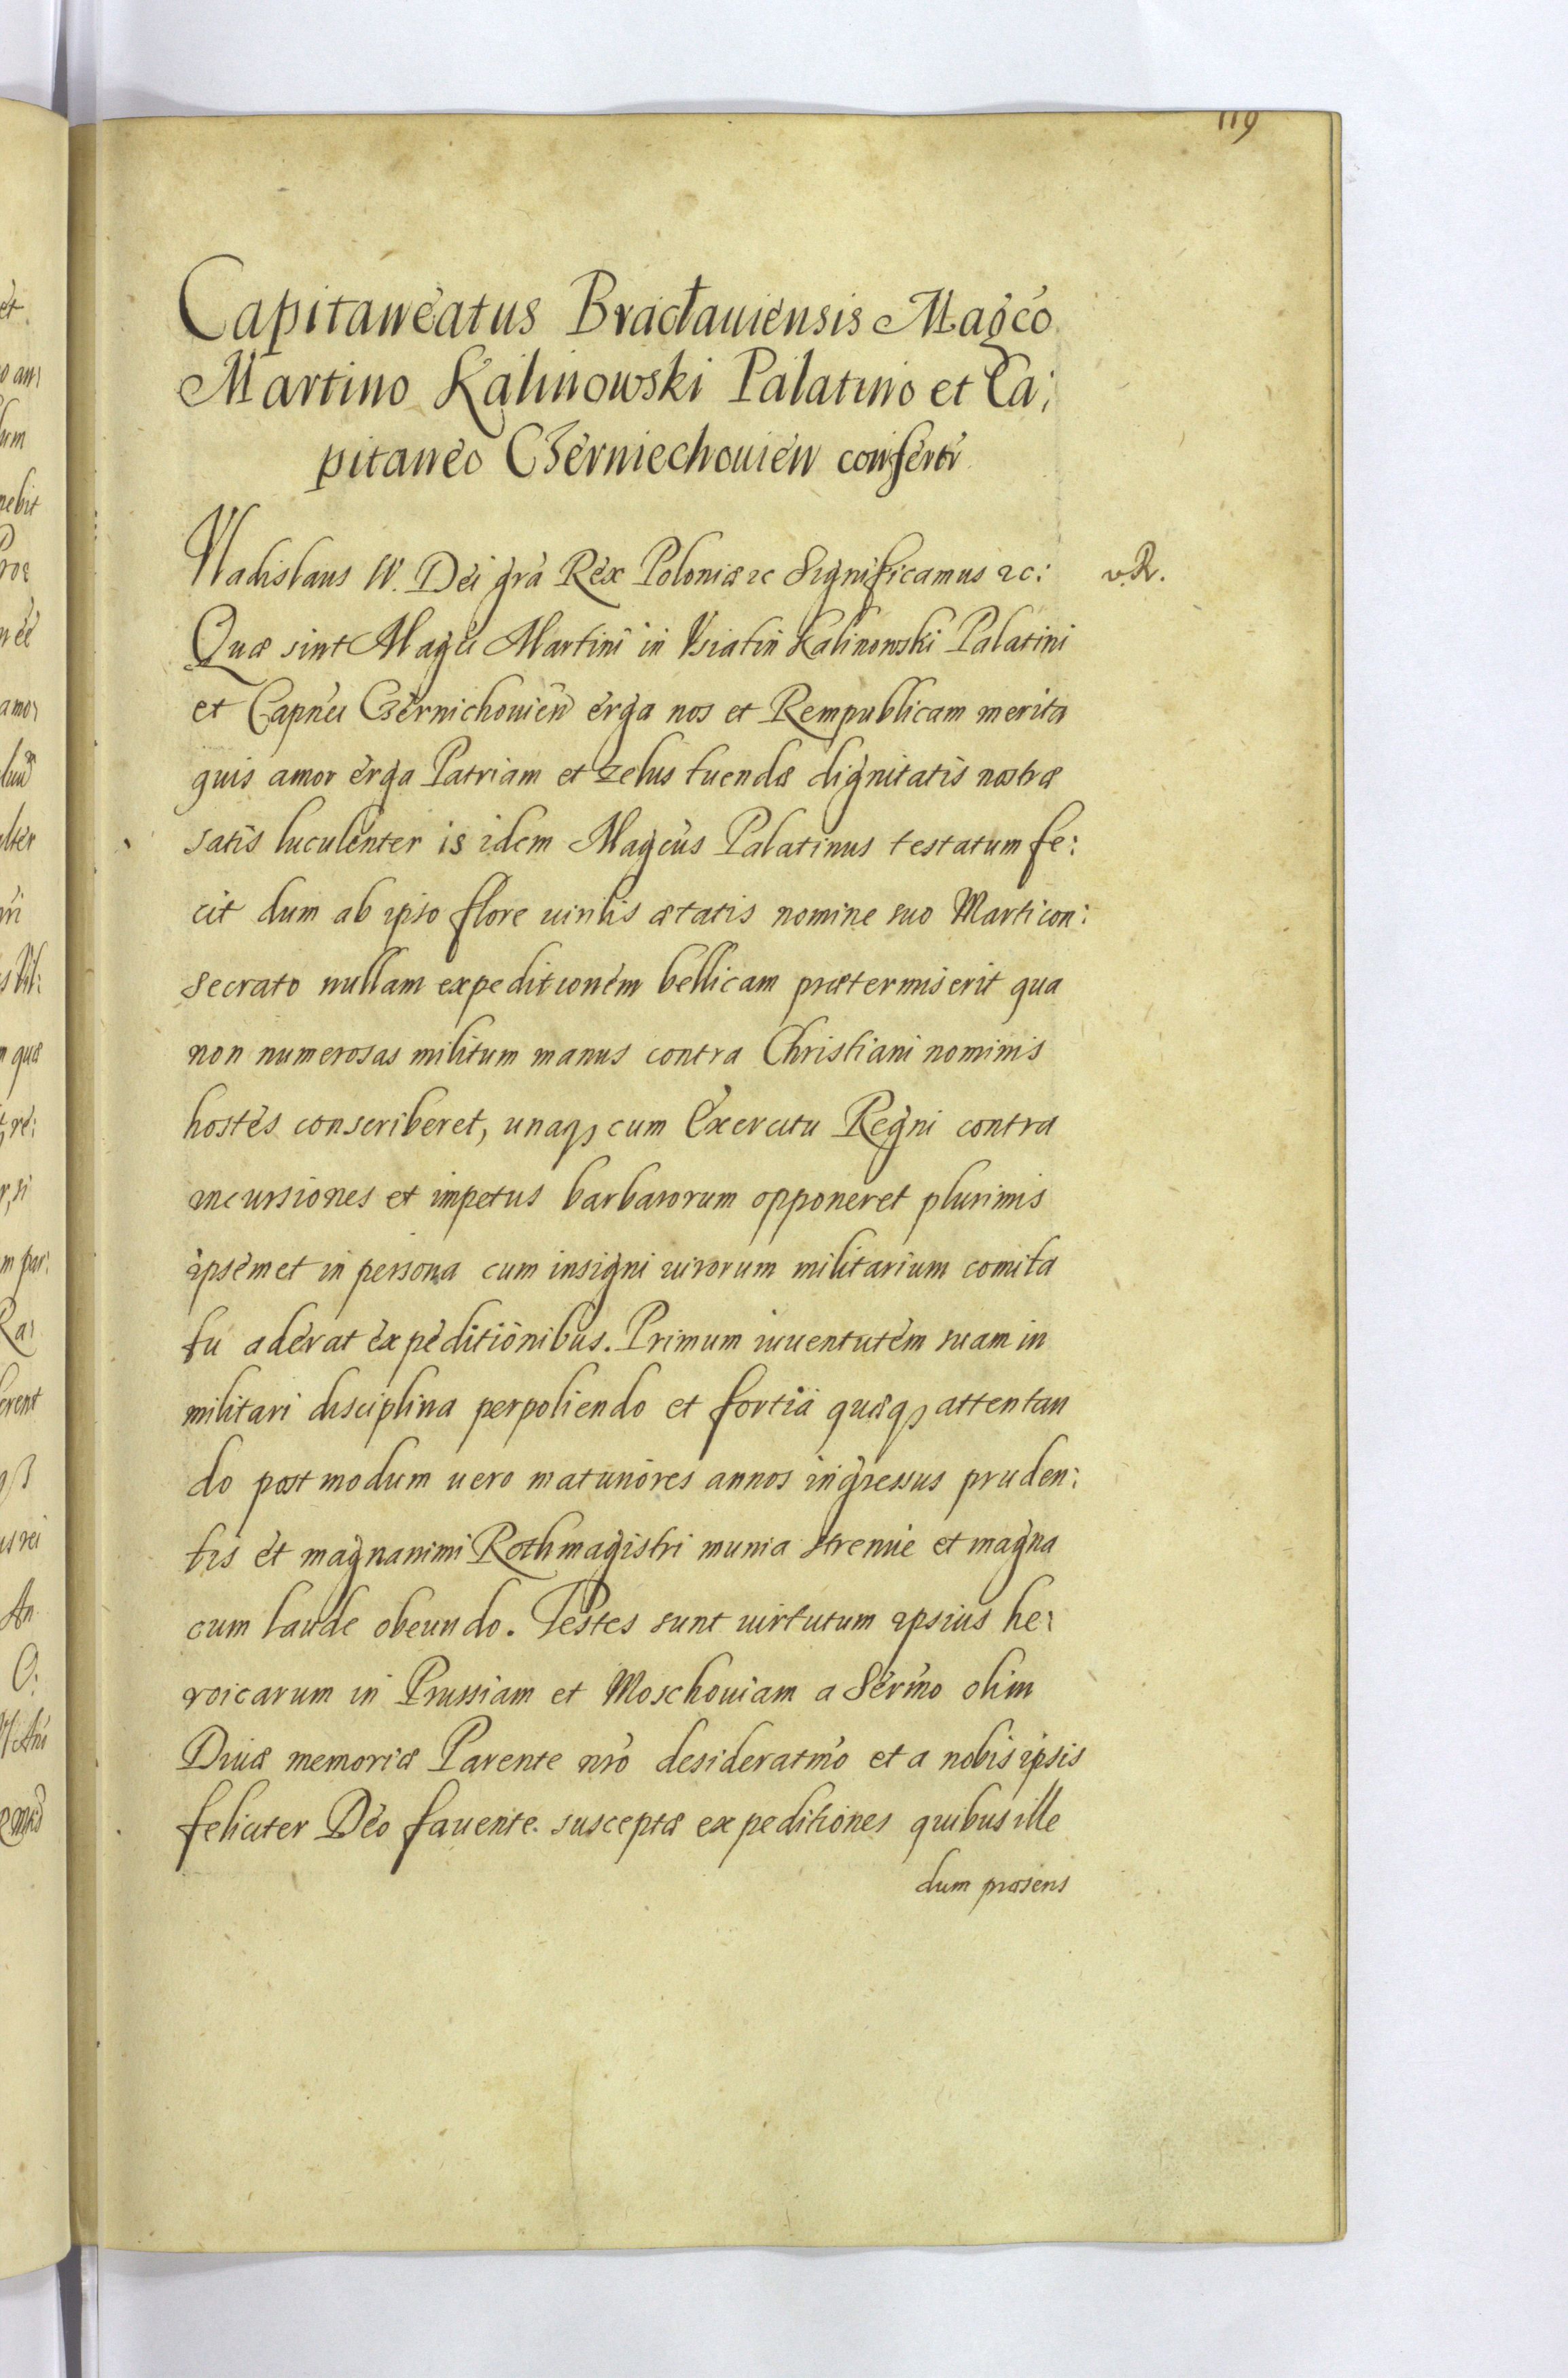 119
Capitaneatus Bracłauiensis Magco
Martino Kalinowski Palatino et Ca:
pitaneo Czerniechouien confertr
Vladislaus IV. Dei gra Rex Poloniæ ꝛc Significamus ꝛc: v.R.
Quæ sint Magci Martini in Vsiatin Kalinowski Palatini
et Capnei Czernichouien erga nos et Rempublicam merita
quis amor erga Patriam et zelus tuendæ dignitatis nostræ
satis luculenter is idem Magcus Palatinus testatum fe:
cit dum ab ipso flore uirilis ætatis nomine suo Marti con:
secrato nullam expeditionem bellicam prætermiserit qua
non numerosas militum manus contra Christiani nominis
hostes conscriberet, unaqꝫ cum Exercitu Regni contra
incursiones et impetus barbarorum opponeret plurimis
ipsemet in persona cum insigni uirorum militarium comita
tu aderat expeditionibus. Primum iuuentutem suam in
militari disciplina perpoliendo et fortia quæqꝫ attentan
do postmodum uero maturiores annos ingressus pruden:
tis et magnanimi Rothmagistri munia strenue et magna
cum laude obeundo. Testes sunt uirtutum ipsius he:
roicarum in Prussiam et Moschouiam a Sermo olim
Diuæ memoriæ Parente nro desideratmo et a nobis ipsis
feliciter Deo fauente susceptæ expeditiones quibus ille
dum præsens